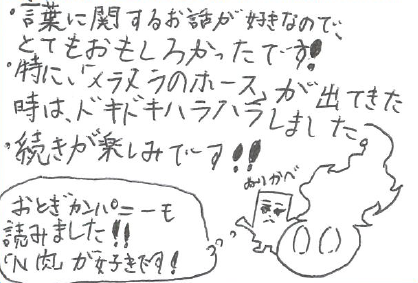 ・言葉に関するお話が好きなので、
とてもおもしろかったです!
・特に、「メラメラのホース」が出てきた
時は、ドキドキハラハラしました。
・続きが楽しみです!!
ぬりかべ
おとぎカンパニーモ
読みました!!
「N肉」が好きです!